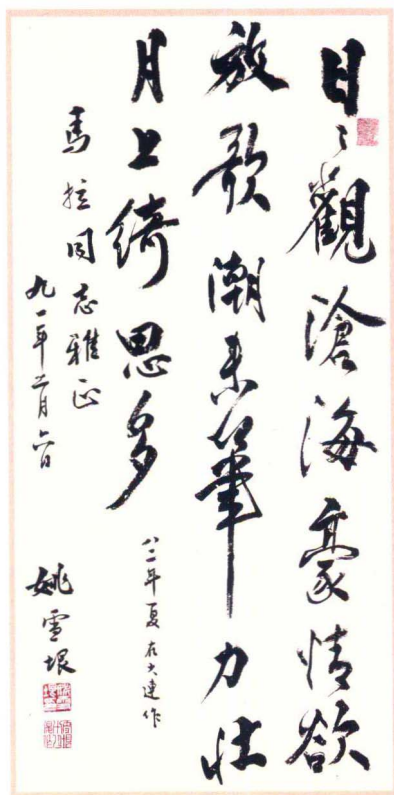 日々觀滄海豪情欲
放歌潮來筆力壯
月上綺思多
八二年夏在大連作
馬拉同志雅正
九一年二月六日
姚雪垠